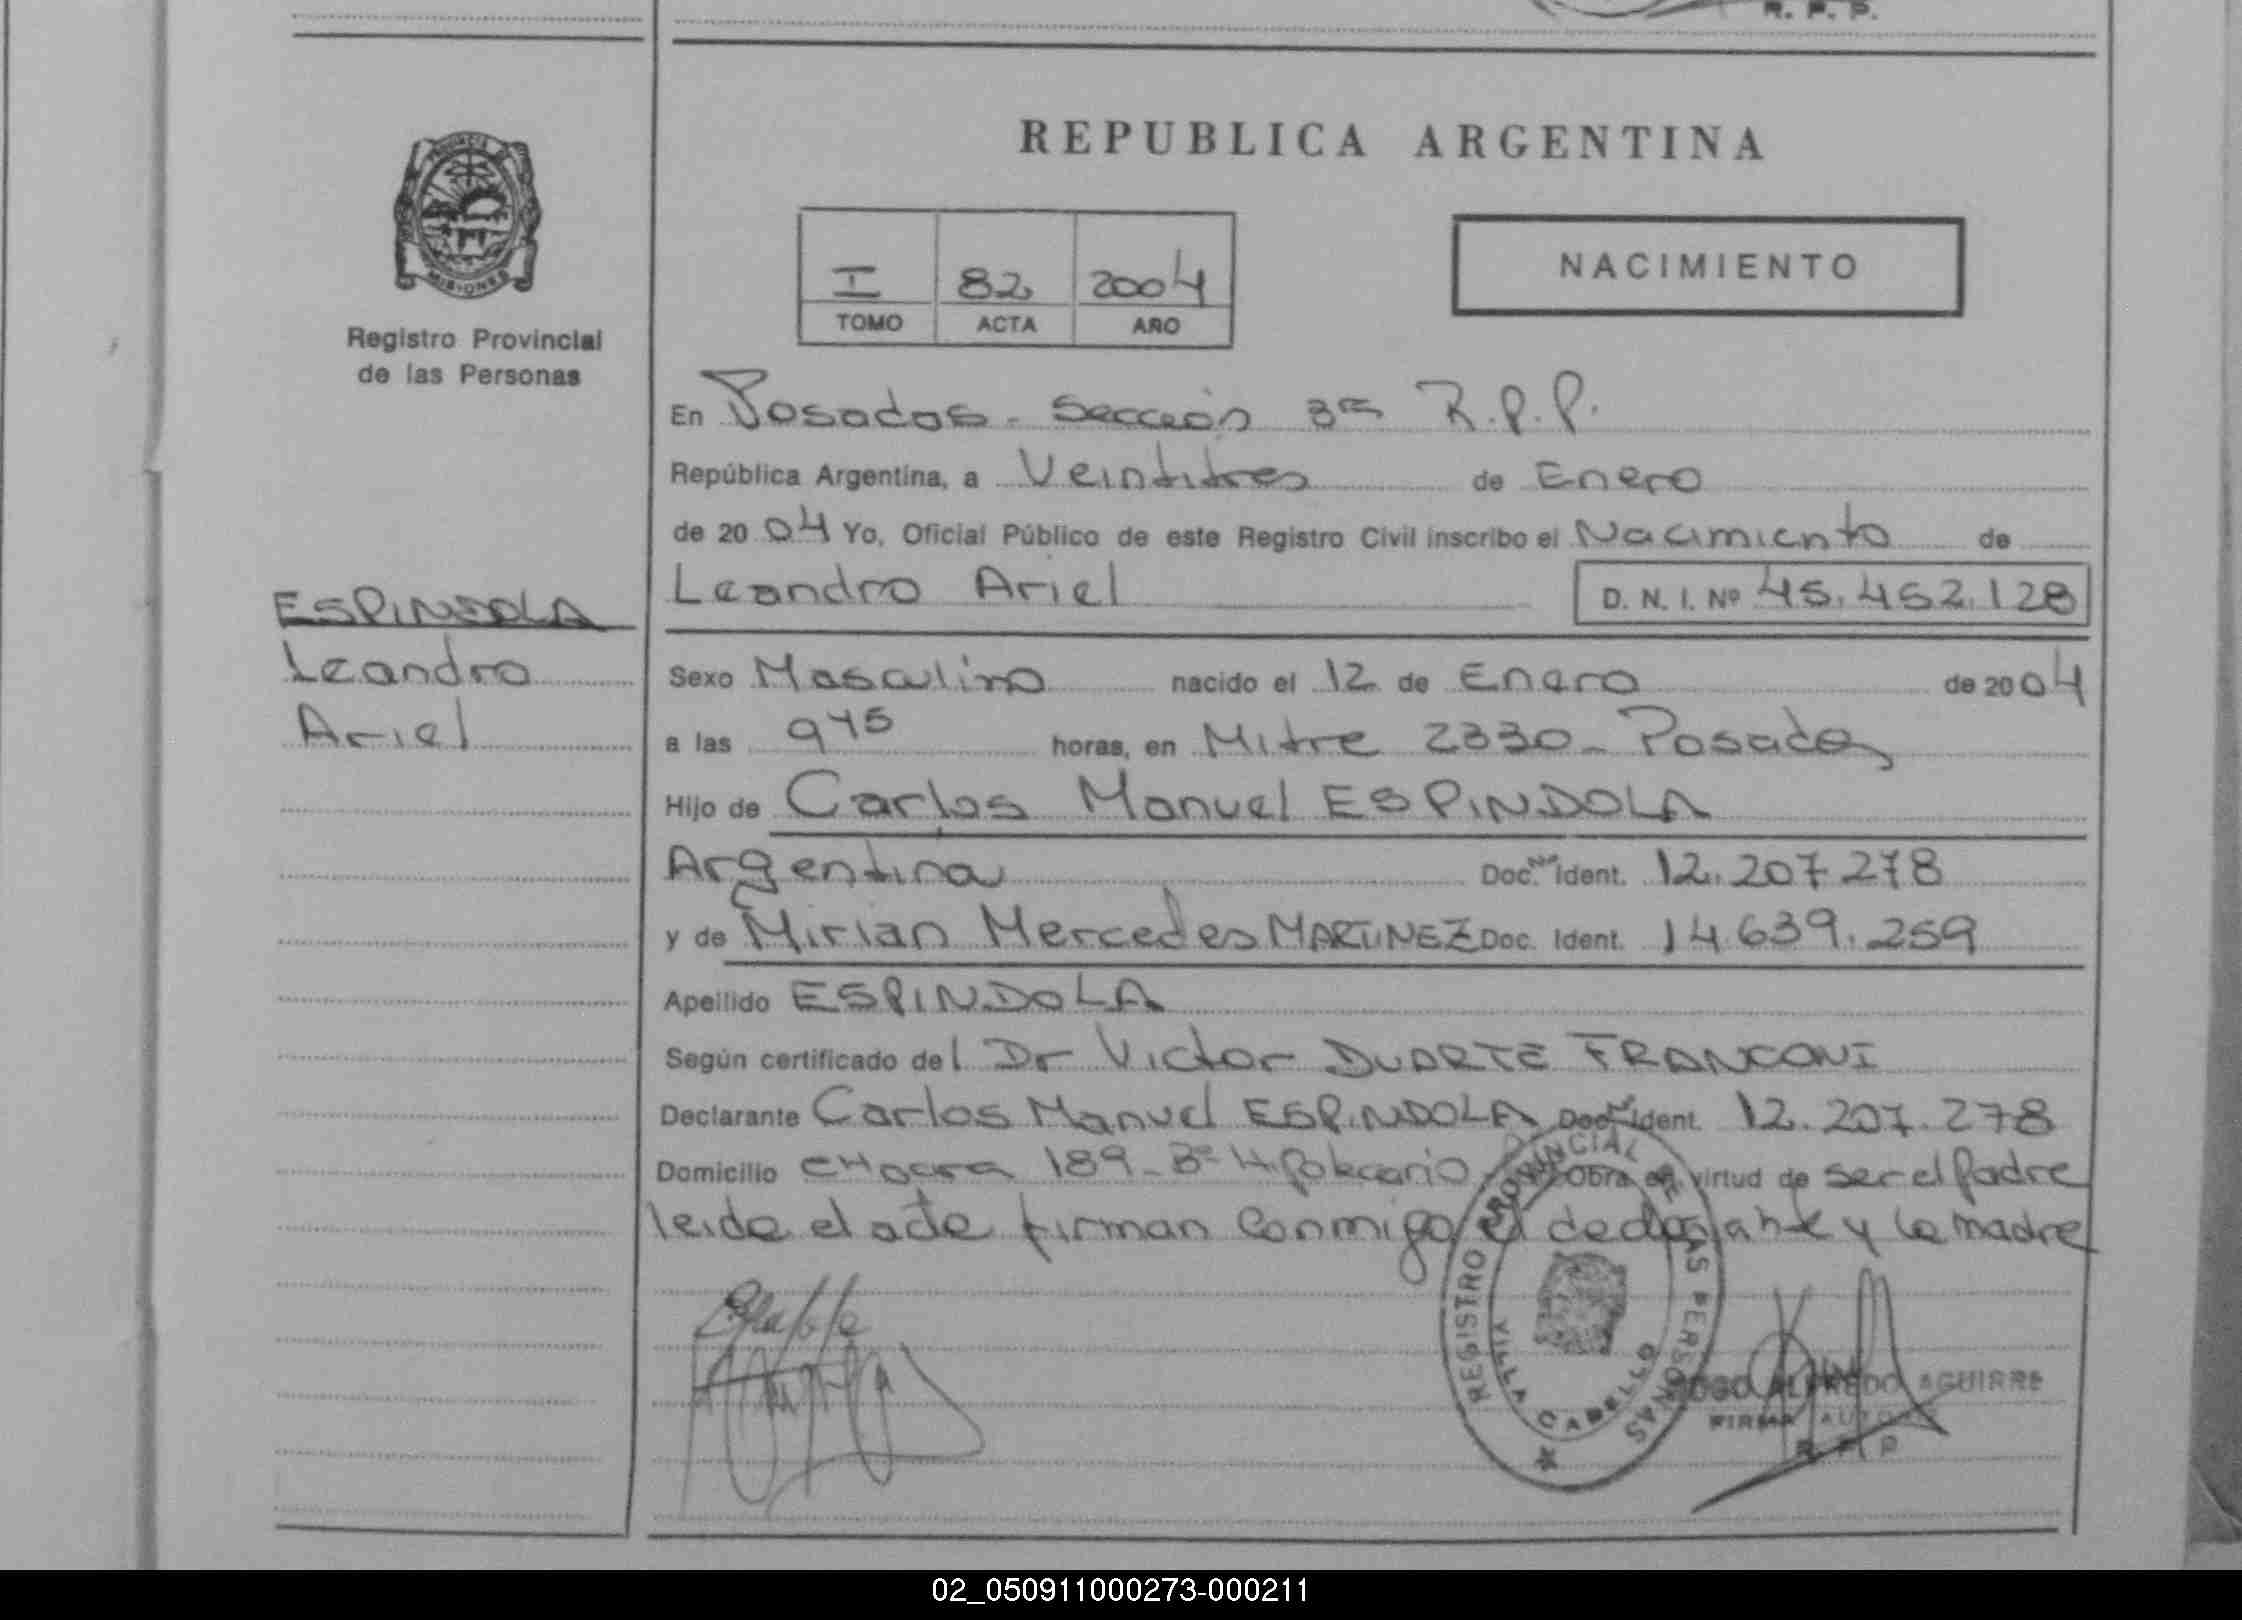 R. P. P.
PROVINCIA DE
MISIONES
Registro Provincial
de las Personas
REPUBLICA ARGENTINA
I 82 2004
TOMO ACTA AÑO
NACIMIENTO
En Posadas - Sección 3ra R.P.P.
República Argentina, a Veintitres de Enero
de 20 04 Yo, Oficial Público de este Registro Civil inscribo el Nacimiento de
Leandro Ariel D. N. I. Nº 45.452.128
ESPINDOLA
Leandro
Ariel
Sexo Masculino nacido el 12 de Enero de 20 04
a las 9 45 horas, en Mitre 2330 - Posadas
Hijo de Carlos Manuel ESPINDOLA
Argentina Doc. Nº Ident. 12.207.278
y de Mirian Mercedes MARTINEZ Doc. Ident. 14.639.259
Apellido ESPINDOLA
Según certificado del Dr Victor DUARTE FRANCONI
Declarante Carlos Manuel ESPINDOLA Doc. Nº Ident. 12.207.278
Domicilio 189 - Bº Hipotecario Obra en virtud de ser el padre
leida el acta firman conmigo el declarante y la madre
REGISTRO PROVINCIAL DE LAS PERSONAS
VILLA CABELLO
ALFREDO AGUIRRE
FIRMA
R. P. P.
02_050911000273-000211